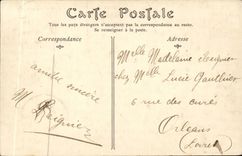 Carte Postale
Tous les pays étrangers n'acceptent pas la correspondance au recto.
Se renseigner à la poste.
Correspondance
Adresse
amitié sincère
M.
Melle Madeleine
chez Melle Lucie Gauthier
6 rue des curés
Orléans
(Loiret)